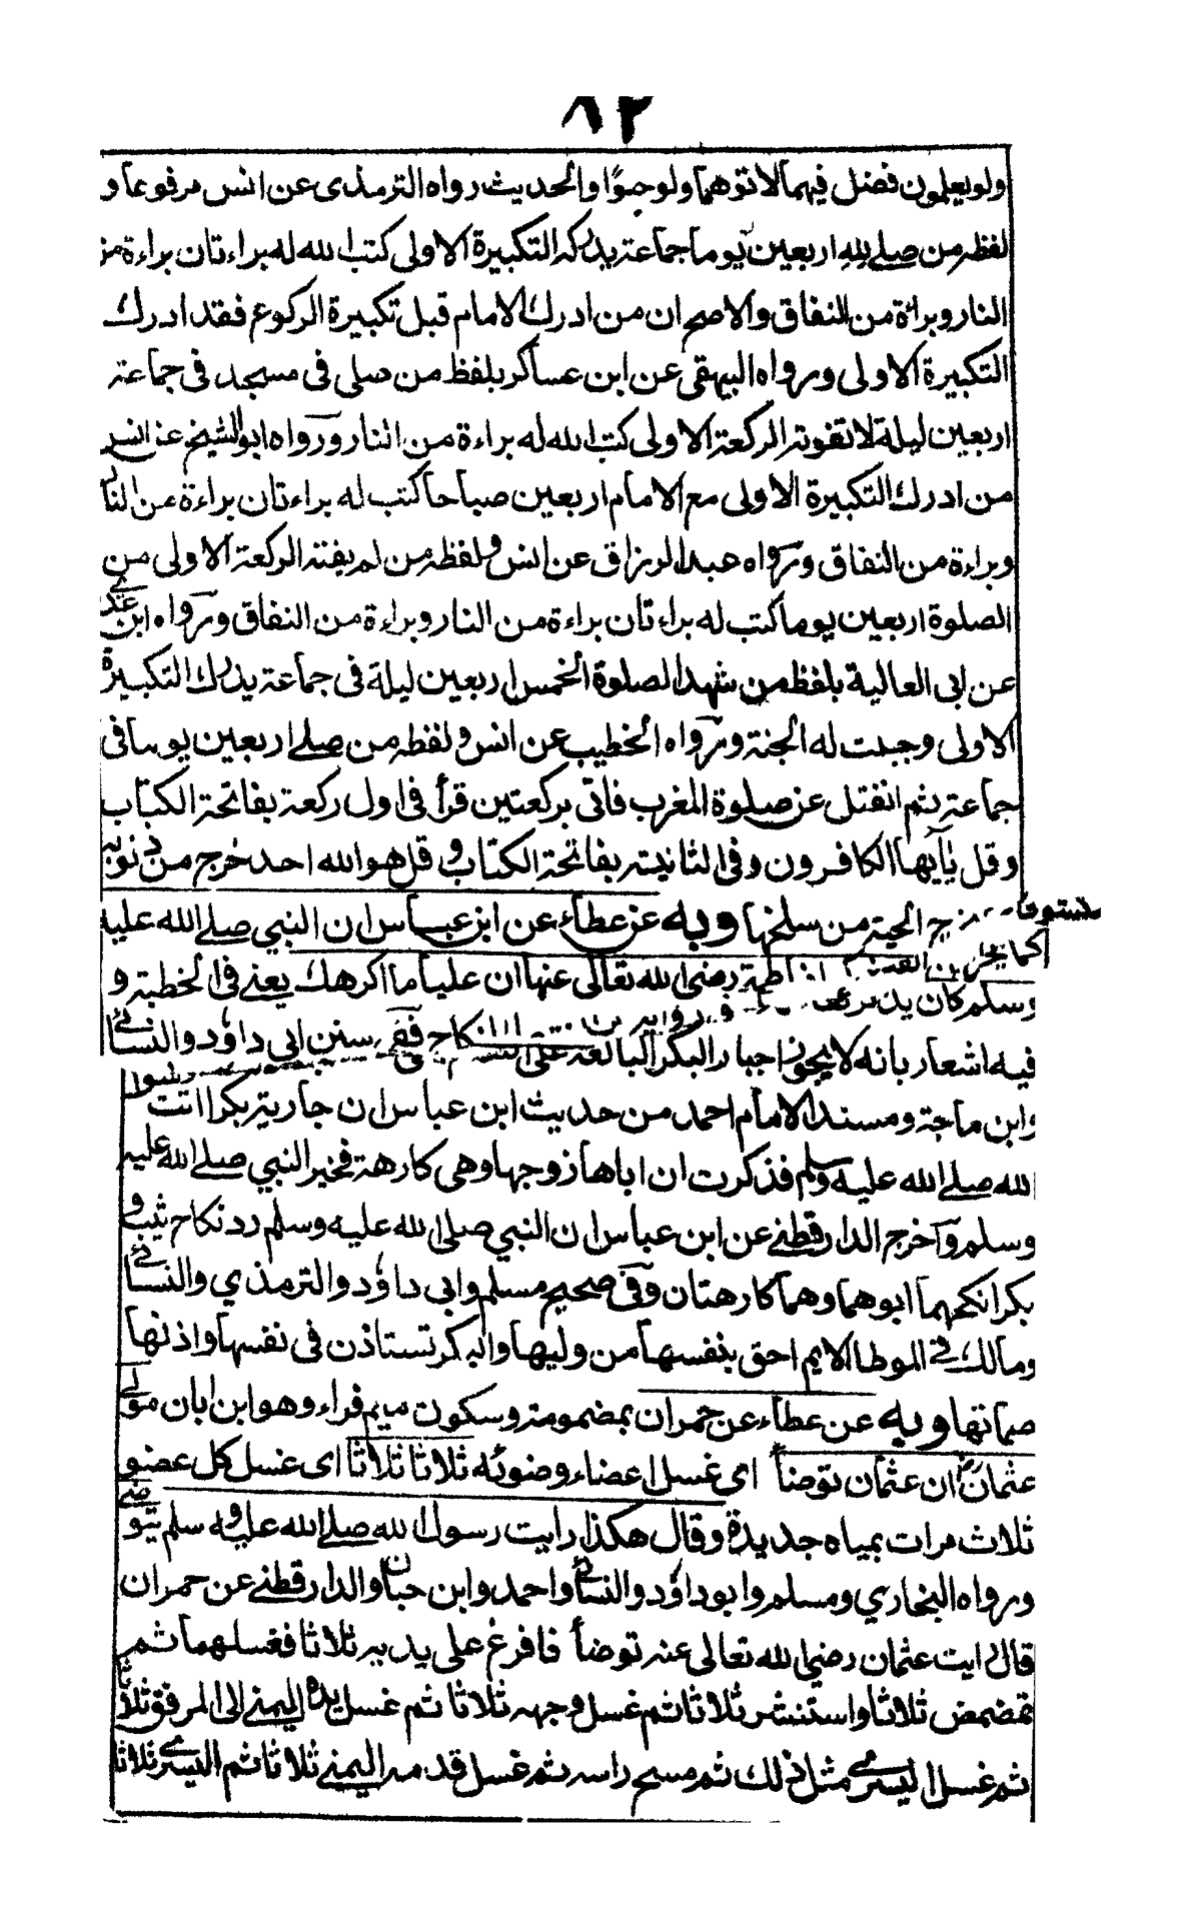 ٨٢
ولو يعلمون فضل فيهما لاتوهما ولو حبوًا والحديث رواه الترمذى عن انس مرفوعا و
لفظه من صلے لله اربعين يوما جماعة يدرك التكبيرة الاولى كتب الله له براءتان براءة من
النار وبراءة من النفاق والاصح ان من ادرك الامام قبل تكبيرة الركوع فقد ادرك
التكبيرة الاولى ورواه البيهقى عن ابن عساكر بلفظ من صلى فى مسجد فى جماعة
اربعين ليلة لا تفوته الركعة الاولى كتب الله له براءة من النار ورواه ابو الشيخ عن انس
من ادرك التكبيرة الاولى مع الامام اربعين صباحا كتب له براءتان براءة من النار
وبراءة من النفاق ورواه عبد الرزاق عن انس ولفظه من لم يفته الركعة الاولى من
الصلوة اربعين يوما كتب له براءتان براءة من النار وبراءة من النفاق ورواه ابن عدے
عن ابى العالية بلفظ من شهد الصلوة الخمس اربعين ليلة فى جماعة يدرك التكبيرة
الاولى وجبت له الجنة ورواه الخطيب عن انس ولفظه من صلے اربعين يوما فى
جماعة ثم انفتل عن صلوة المغرب فاتى بركعتين قرأ فى اول ركعة بفاتحة الكتاب
وقل يآيها الكافرون وفى الثانية بفاتحة الكتاب وقل هو الله احد خرج من ذنوبه
كما تخرج الحية من سلخها وبه عن عطاء عن ابن عباس ان النبي صلے الله عليه
وسلم كان يذكر فاطمة رضى الله تعالى عنها ان عليا ما اكرهك يعنے فى الخطبة و
فيه اشعار بانه لا يجوز اجبار البكر البالغة على النكاح ففى سنن ابى داؤد والنسائے
وابن ماجة ومسند الامام احمد من حديث ابن عباس ان جارية بكرا اتت رسول
الله صلے الله عليه وسلم فذكرت ان اباها زوجها وهى كارهة فخير النبي صلے الله عليه
وسلم وآخرج الدارقطنے عن ابن عباس ان النبي صلى الله عليه وسلم رد نكاح ثيب و
بكر انكحهما ابوهما وهما كارهتان وفى صحيح مسلم وابى داؤد والترمذي والنسائے
ومالك فے الموطا الايم احق بنفسها من وليها والبكر تستاذن فى نفسها واذنها
صماتها وبه عن عطاء عن حمران بمضمومة وسكون ميم فراء وهو ابن ابان مولے
عثمان ان عثمان توضأ اى غسل اعضاء وضوئه ثلاثا ثلاثا اى غسل كل عضو
ثلاث مرات بمياه جديدة وقال هكذا رايت رسول الله صلے الله عليه وسلم يتوضے
ورواه البخاري ومسلم وابو داؤد والنسائے واحمد وابن حبان والدارقطنے عن حمران
قال رايت عثمان رضي الله تعالى عنه توضأ فافرغ على يديه ثلاثا فغسلهما ثم
تمضمض ثلاثا واستنثر ثلاثا ثم غسل وجهه ثلاثا ثم غسل يده اليمنے الى المرفق ثلاثا
ثم غسل اليسرے مثل ذلك ثم مسح راسه ثم غسل قدمه اليمنے ثلاثا ثم اليسرے ثلاثا